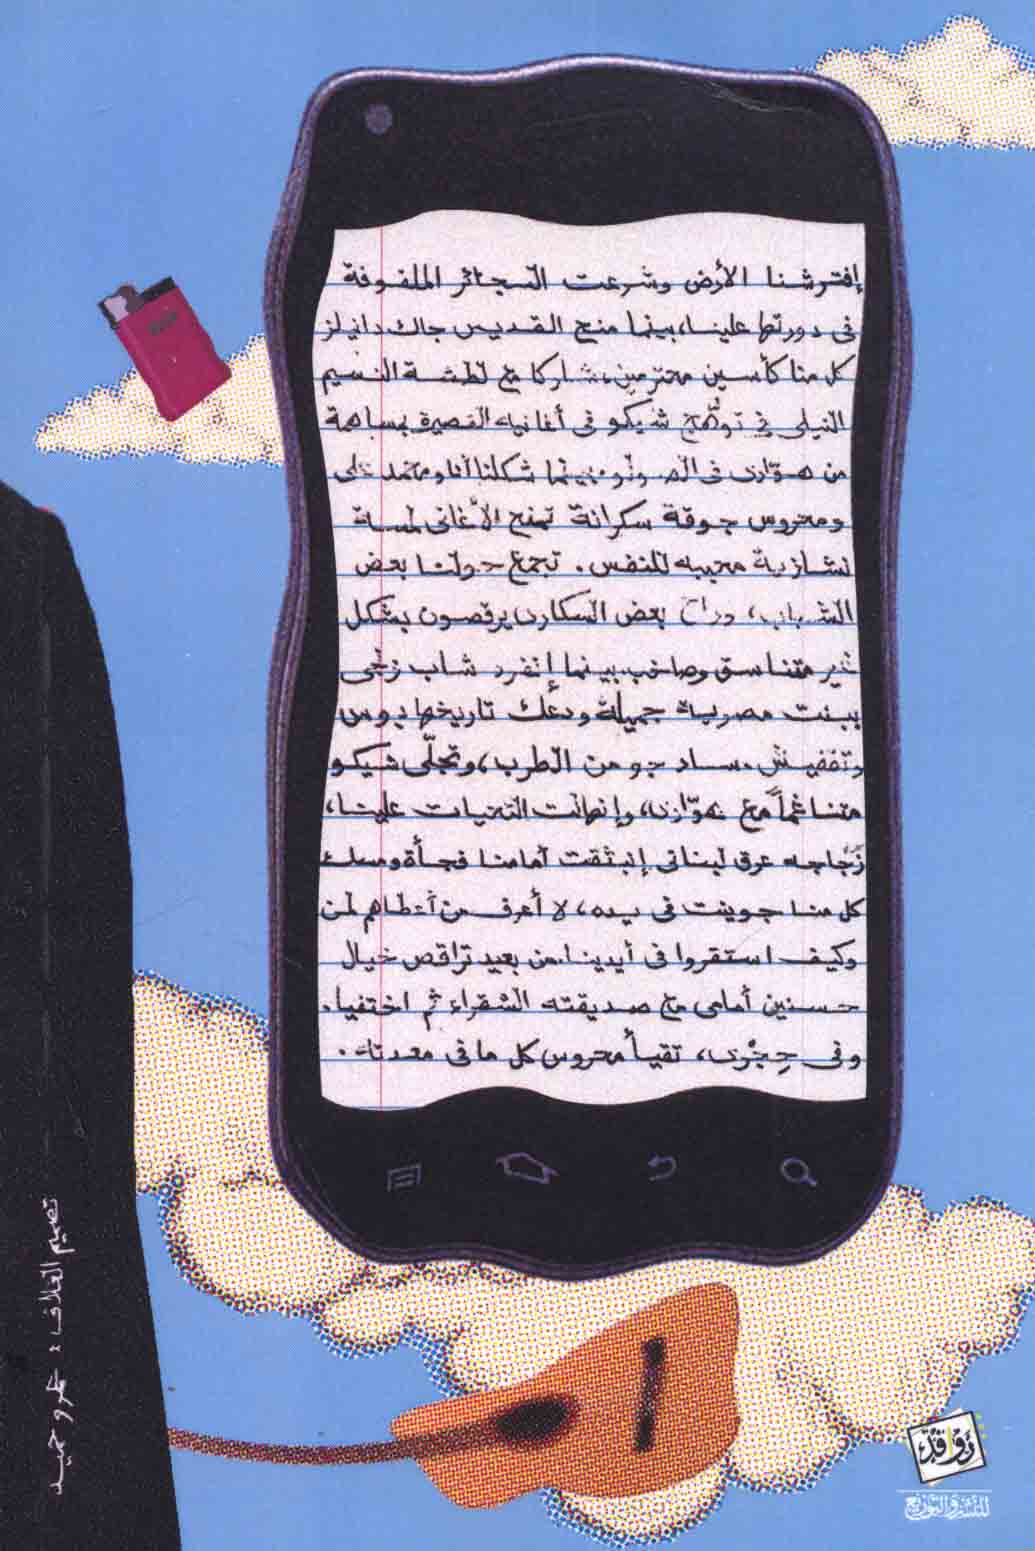 إفترشنا الأرض وشرعت السجائر الملفوفة
فى دورتها علينا، بينما منح القديس جاك دانيلز
كل منا كأسين محترمين، مشاركا مع لطشة النسيم
النيلى في توهّج شيكو فى أغانيه القصيرة بمساهمة
من هوّارى فى الصولو، بينما شكلنا أنا ومحمد على
ومحروس جوقة سكرانة تمنح الأغانى لمسة
نشازية محببه للنفس. تجمع حولنا بعض
الشباب، وراح بعض السكارى يرقصون بشكل
غير متناسق وصاخب بينما إنفرد شاب زنجى
ببنت مصرية جميلة ودعك تاريخها بوس
وتقفيش. ساد جو من الطرب، وتجلّى شيكو
متناغماً مع هوّارى، وإنهالت التحيات علينا،
زُجاجه عرق لبنانى إنبثقت أمامنا فجأة ومسك
كل منا جوينت فى يده، لا أعرف من أعطاهم لمن
وكيف استقروا فى أيدينا. من بعيد تراقص خيال
حسنين أمامى مع صديقته الشقراء ثم اختفيا.
وفى حِجْرى، تقيأ محروس كل ما فى معدته.
تصميم الغلاف: عمرو حميد
روافد
للنشر والتوزيع